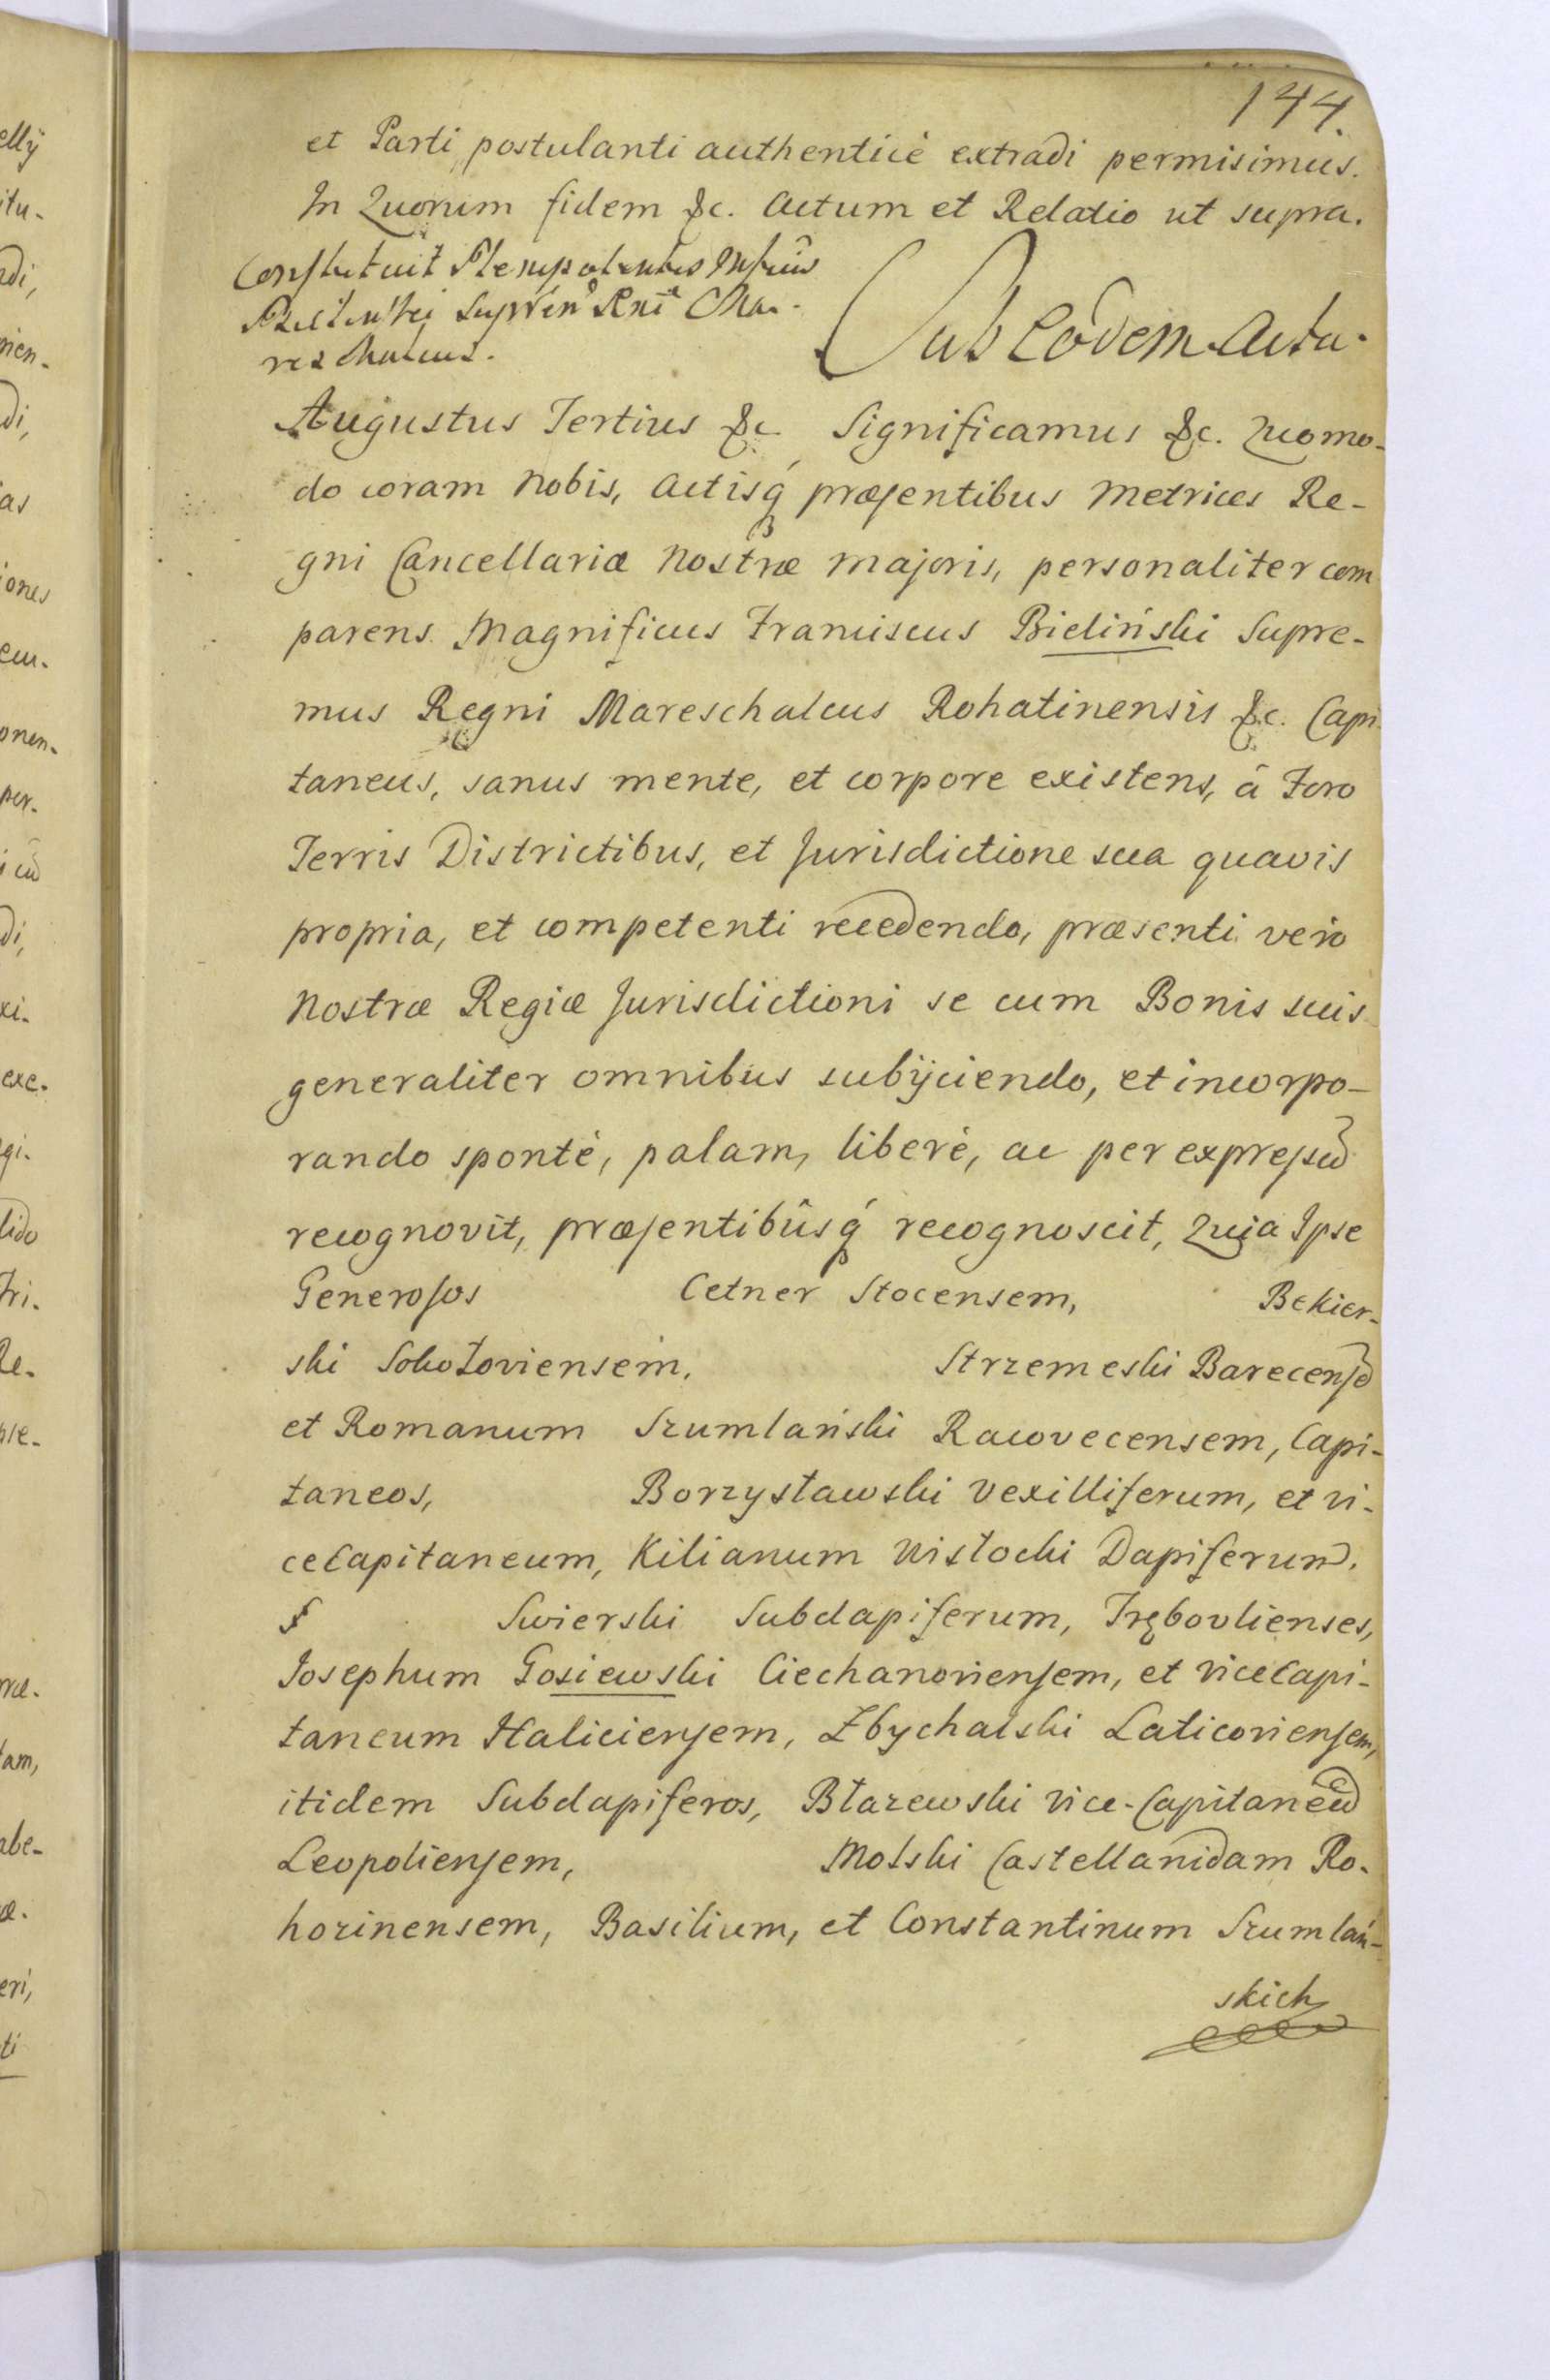 144.
et Parti postulanti authenticè extradi permisimus.
In Quorum fidem &c. Actum et Relatio ut supra.
Constituit Plenipotentes
Supren Rni Ma-
reschalcus.
Sub Eodem Actu.
Augustus Tertius &c. Significamus &c. Quomo-
do coram Nobis, Actisq́ præsentibus Metrices Re-
gni Cancellariæ Nostræ Majoris, personaliter com
parens Magnificus Franciscus Bieliński Supre-
mus Regni Mareschalcus Rohatinensis &c. Capi-
taneus, sanus mente, et corpore existens, â Foro
Terris Districtibus, et Jurisdictione sua quavis
propria, et competenti recedendo, præsenti verò
Nostræ Regiæ Jurisdictioni se cum Bonis suis
generaliter omnibus subÿciendo, et incorpo-
rando spontè, palam, liberè, ac per expressũ
recognovit, præsentibûsq́ recognoscit, Quia Ipse
Generosos Cetner Stocensem, Bekier-
ski Sokołoviensem, Strzemeski Barecensẽ
et Romanum Szumlański Racovecensem, Capi-
taneos, Borzysławski Vexilliferum, et Vi-
ceCapitaneum, Kilianum Wisłocki Dapiferum,
Swierski Subdapiferum, Tręбovlienses,
Josephum Gosiewski Ciechanoviensem, et ViceCapi-
taneum Haliciensem, Zbychalski Laticoviensem,
itidem Subdapiferos, Błazewski Vice-Capitaneũ
Leopoliensem, Molski Castellanidam Ro-
hozinensem, Basilium, et Constantinum Szumlań-
skich
elly
itu-
di,
men-
di,
as
iones
cu-
onen-
per-
di,
xi-
exe-
gi-
lido
tri-
Re-
ple-
ræ-
tam,
abe-
æ.
eri,
ti